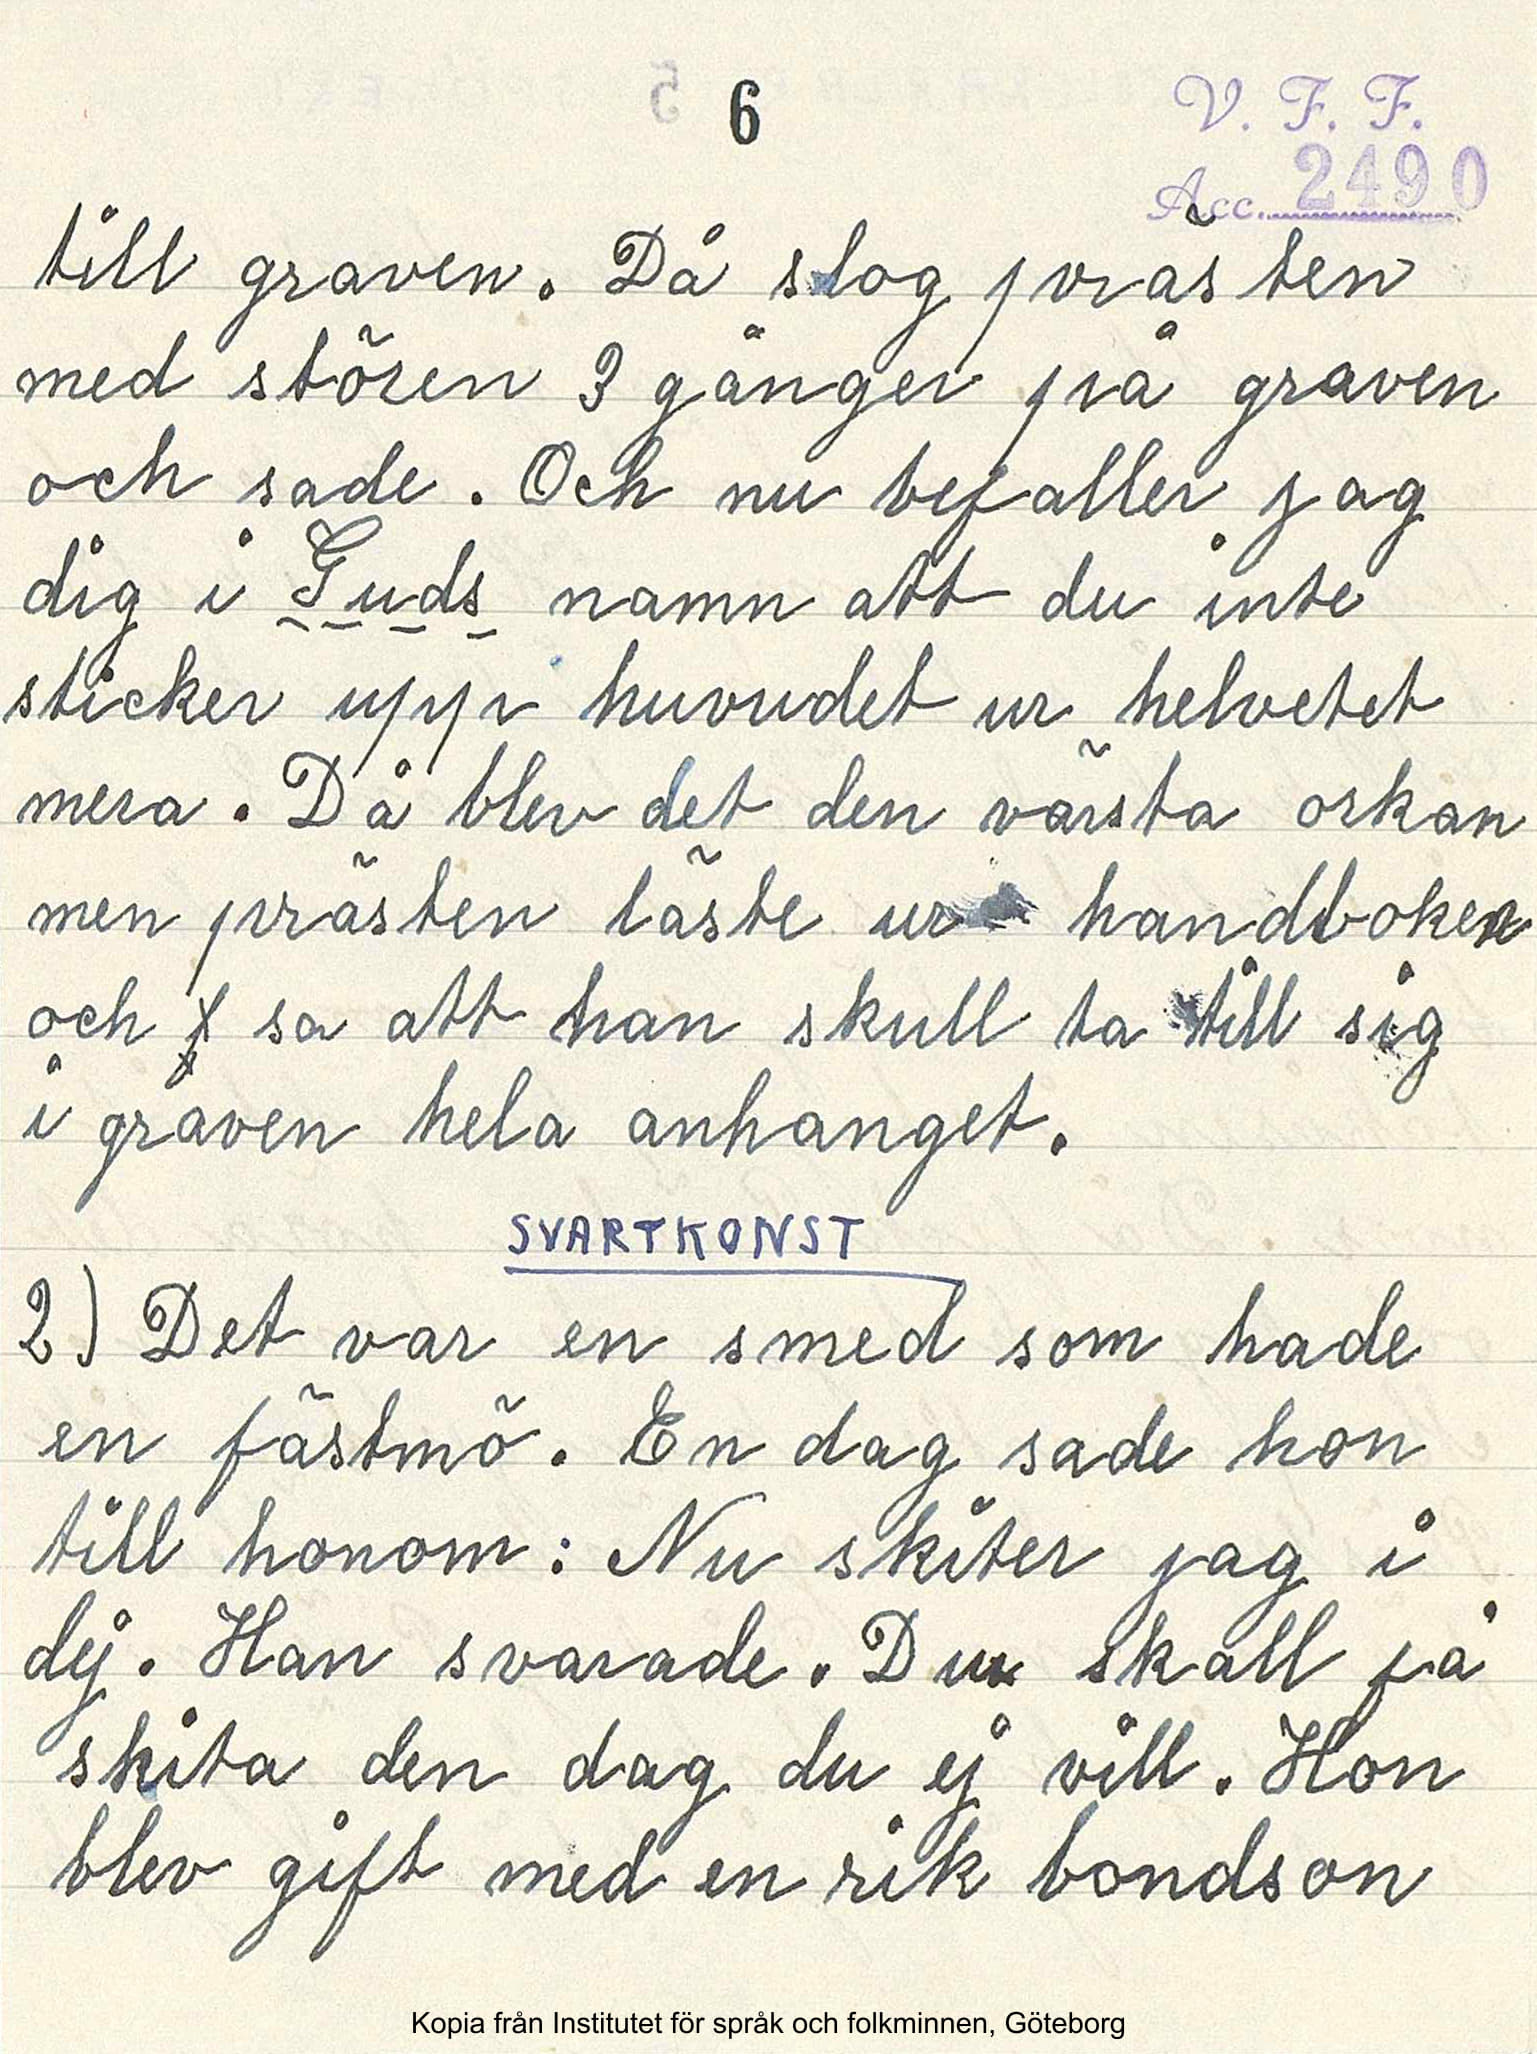 6
V. F. F.
Acc. 2490
till graven. Då slog prästen
med stören 3 gånger på graven
och sade. Och nu befaller jag
dig i Guds namn att du inte
sticker upp huvudet ur helvetet
mera. Då blev det den värsta orkan
men prästen läste ur handboken
och sa att han skull ta till sig
i graven hela anhanget.
SVARTKONST
2) Det var en smed som hade
en fästmö. En dag sade hon
till honom: Nu skiter jag i
dej. Han svarade. Du skall få
skita den dag du ej vill. Hon
blev gift med en rik bondson
Kopia från Institutet för språk och folkminnen, Göteborg